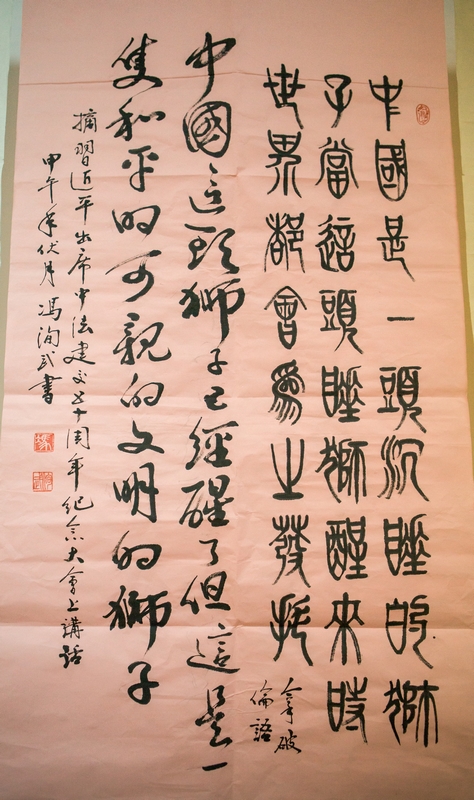 中國是一頭沉睡的獅
子當這頭睡獅醒來時
世界都會為之發抖
拿破
倫語
中國這頭獅子已經醒了但這是一
隻和平的可親的文明的獅子
摘習近平出席中法建交五十周年紀念大會上講話
甲午年伏月 馮洵武書